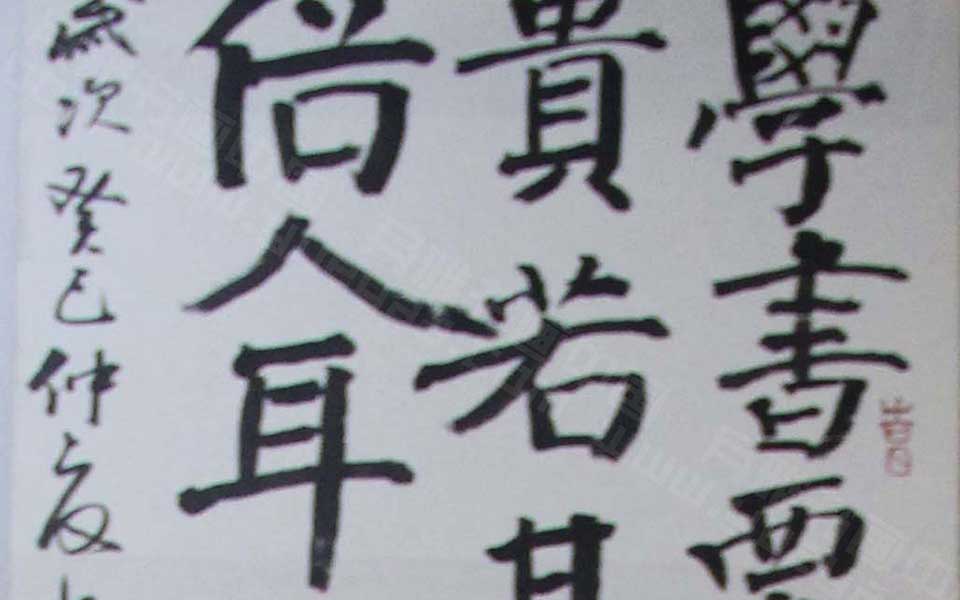 學書要
貴若其
俗人耳
歲次癸巳仲夏